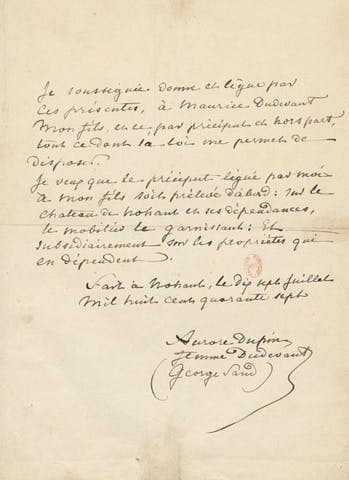 Je soussignée donne et lègue par
ces présentes, à Maurice Dudevant
mon fils, et ce, par préciput et hors part,
tout ce dont la loi me permet de
disposer.
Je veux que le préciput légué par moi
à mon fils soit prélevé d'abord : sur le
chateau de nohant et ses dépendances,
le mobilier le garnissant : Et
subsidiairement sur les propriétés qui
en dépendent.
Fait à Nohant, le dix sept Juillet
Mil huit cent quarante sept
Aurore Dupin
femme Dudevant
(George Sand)